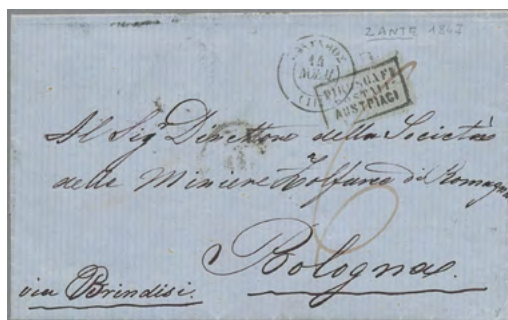 ZANTE 186
14
PIROSCAFI
POSTALI
AUSTRIACI
Al Sig.r Direttore della Società
delle Miniere Zolfuree di Romagna
Bologna.
via Brindisi.